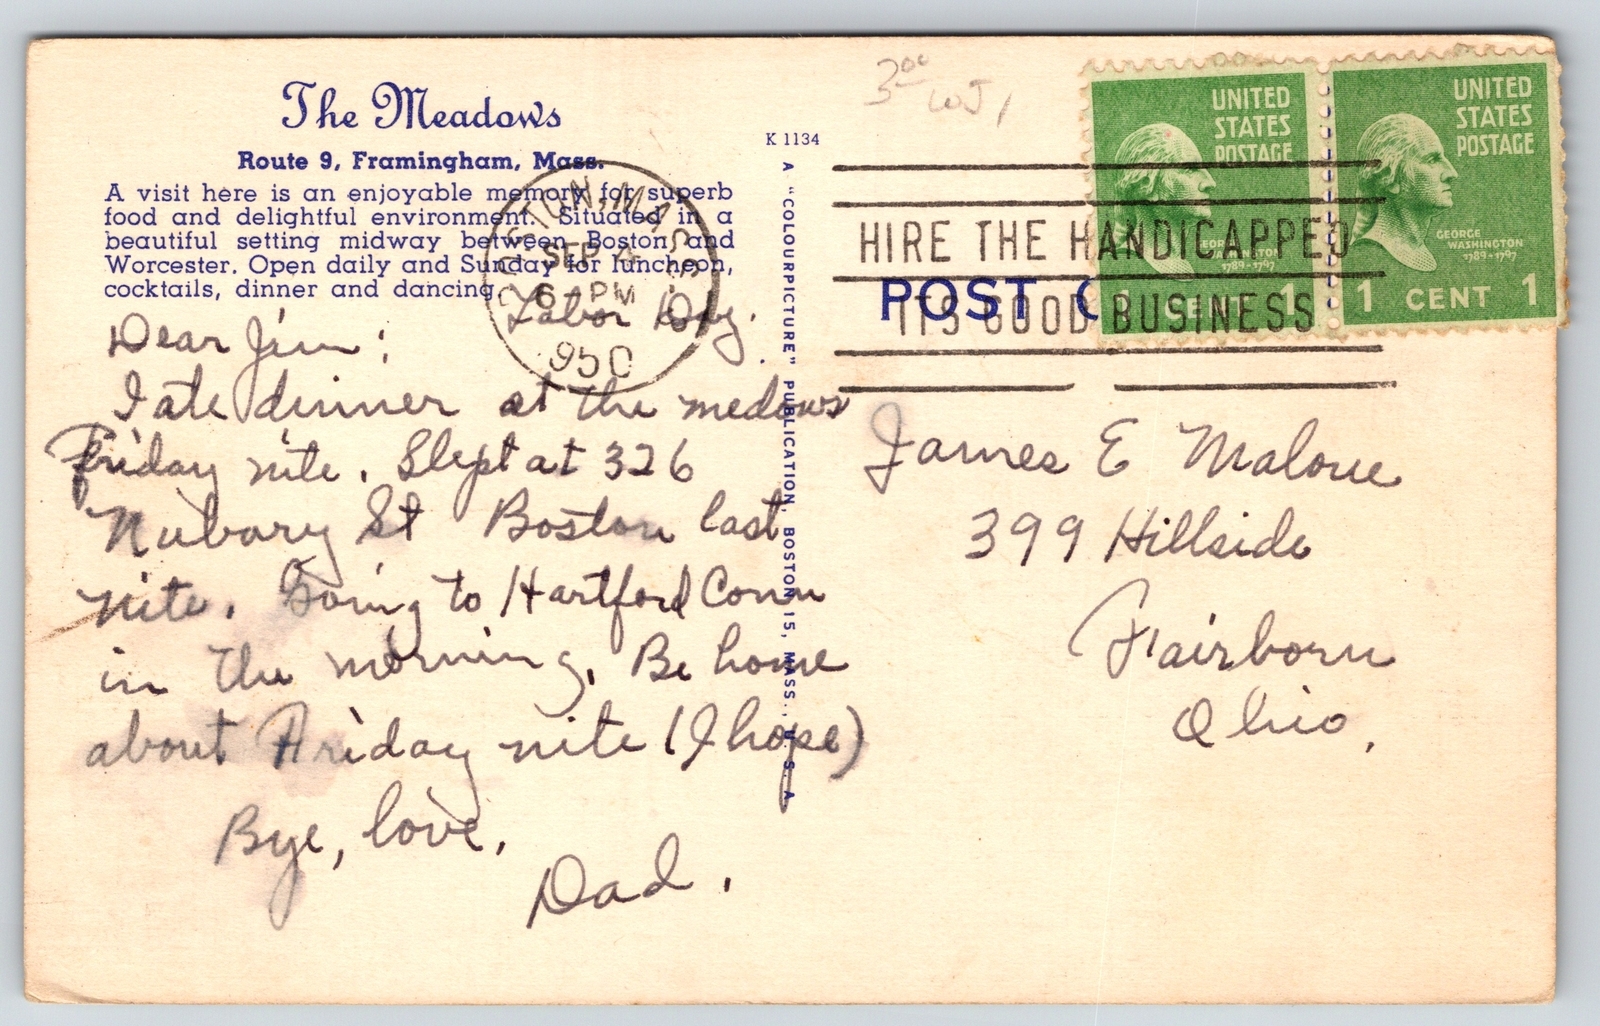 The Meadows
Route 9, Framingham, Mass.
A visit here is an enjoyable memory for superb
food and delightful environment. Situated in a
beautiful setting midway between Boston and
Worcester. Open daily and Sunday for luncheon,
cocktails, dinner and dancing.
Labor Day.
Dear Jim:
I ate dinner at the medows
Friday nite. Slept at 326
Nubary St Boston last
nite. Going to Hartford Conn
in the morning. Be home
about Friday nite (I hope)
Bye, love,
Dad.
K 1134
A "COLOURPICTURE" PUBLICATION, BOSTON 15, MASS., U. S. A.
3.00
BOSTON, MASS.
SEP 4
6 PM
950
HIRE THE HANDICAPPED
ITS GOOD BUSINESS
POST C
UNITED
STATES
POSTAGE
GEORGE
WASHINGTON
1789-1797
1 CENT 1
UNITED
STATES
POSTAGE
GEORGE
WASHINGTON
1789-1797
1 CENT 1
James E Malone
399 Hillside
Fairborn
Ohio,